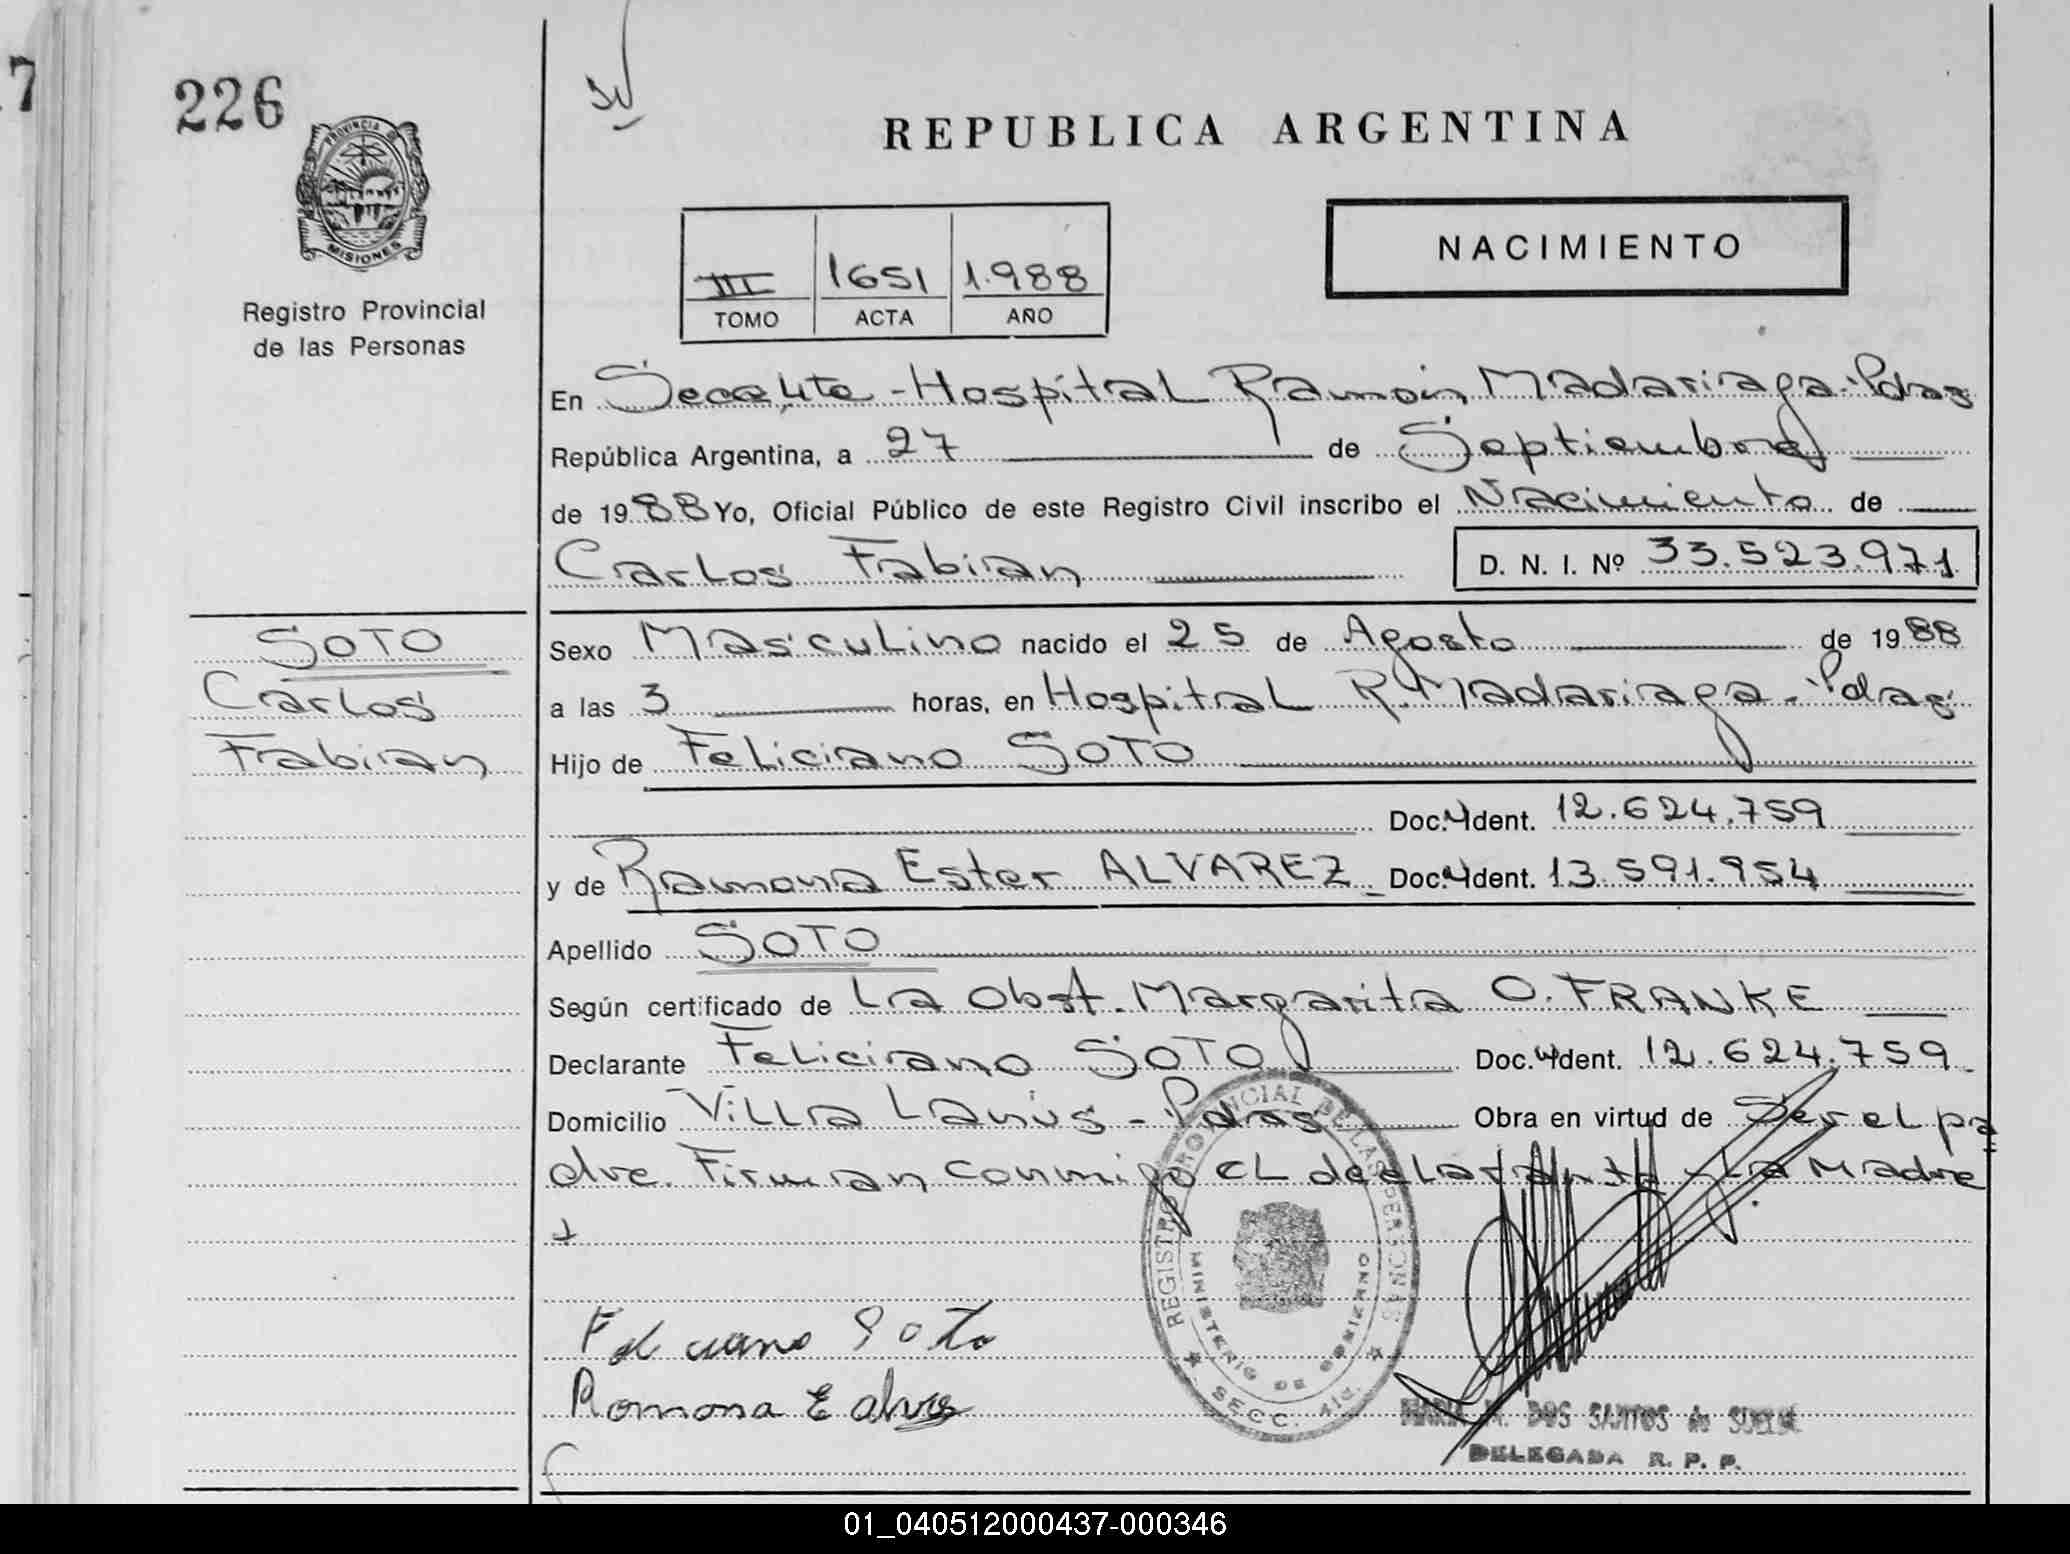 226
PROVINCIA DE
MISIONES
Registro Provincial
de las Personas
REPUBLICA ARGENTINA
NACIMIENTO
III 1651 1.988
TOMO ACTA AÑO
En Secc 4ta - Hospital Ramón Madariaga - Pdas
República Argentina, a 27 de Septiembre
de 1988 Yo, Oficial Público de este Registro Civil inscribo el Nacimiento de
Carlos Fabian D. N. I. Nº 33.523.971
SOTO
Carlos
Fabian
Sexo Masculino nacido el 25 de Agosto de 1988
a las 3 horas, en Hospital R. Madariaga - Pdas
Hijo de Feliciano SOTO
Doc. Ident. 12.624.759
y de Ramona Ester ALVAREZ Doc. Ident. 13.591.954
Apellido SOTO
Según certificado de La Obst. Margarita O. FRANKE
Declarante Feliciano SOTO Doc. Ident. 12.624.759
Domicilio Villa Lanús - Pdas Obra en virtud de Ser el pa
dre. Firman conmigo el declarante y La Madre
REGISTRO PROVINCIAL DE LAS PERSONAS
MINISTERIO DE GOBIERNO
SECC. 4ta.
Feliciano Soto
Ramona E
DOS SANTOS de
DELEGADA R. P. P.
01_040512000437-000346